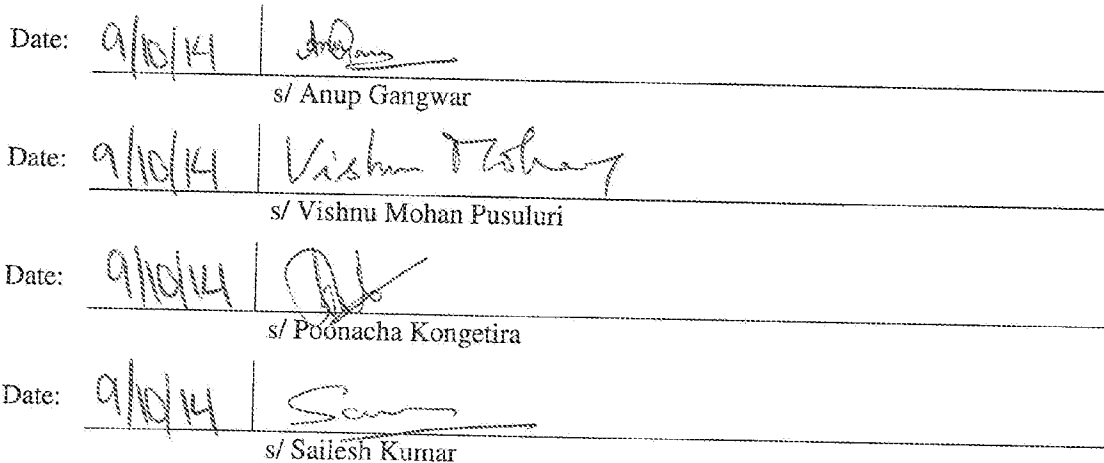 Date: 9/10/14
s/ Anup Gangwar
Date: 9/10/14 Vishnu Mohan
s/ Vishnu Mohan Pusuluri
Date: 9/10/14
s/ Poonacha Kongetira
Date: 9/10/14
s/ Sailesh Kumar